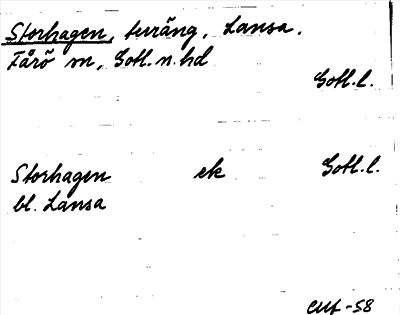 Storhagen, turäng, Lansa.
Fårö sn, Gotl. n. hd
Gotl. l.
Storhagen ek Gotl. l.
bl. Lansa
-58